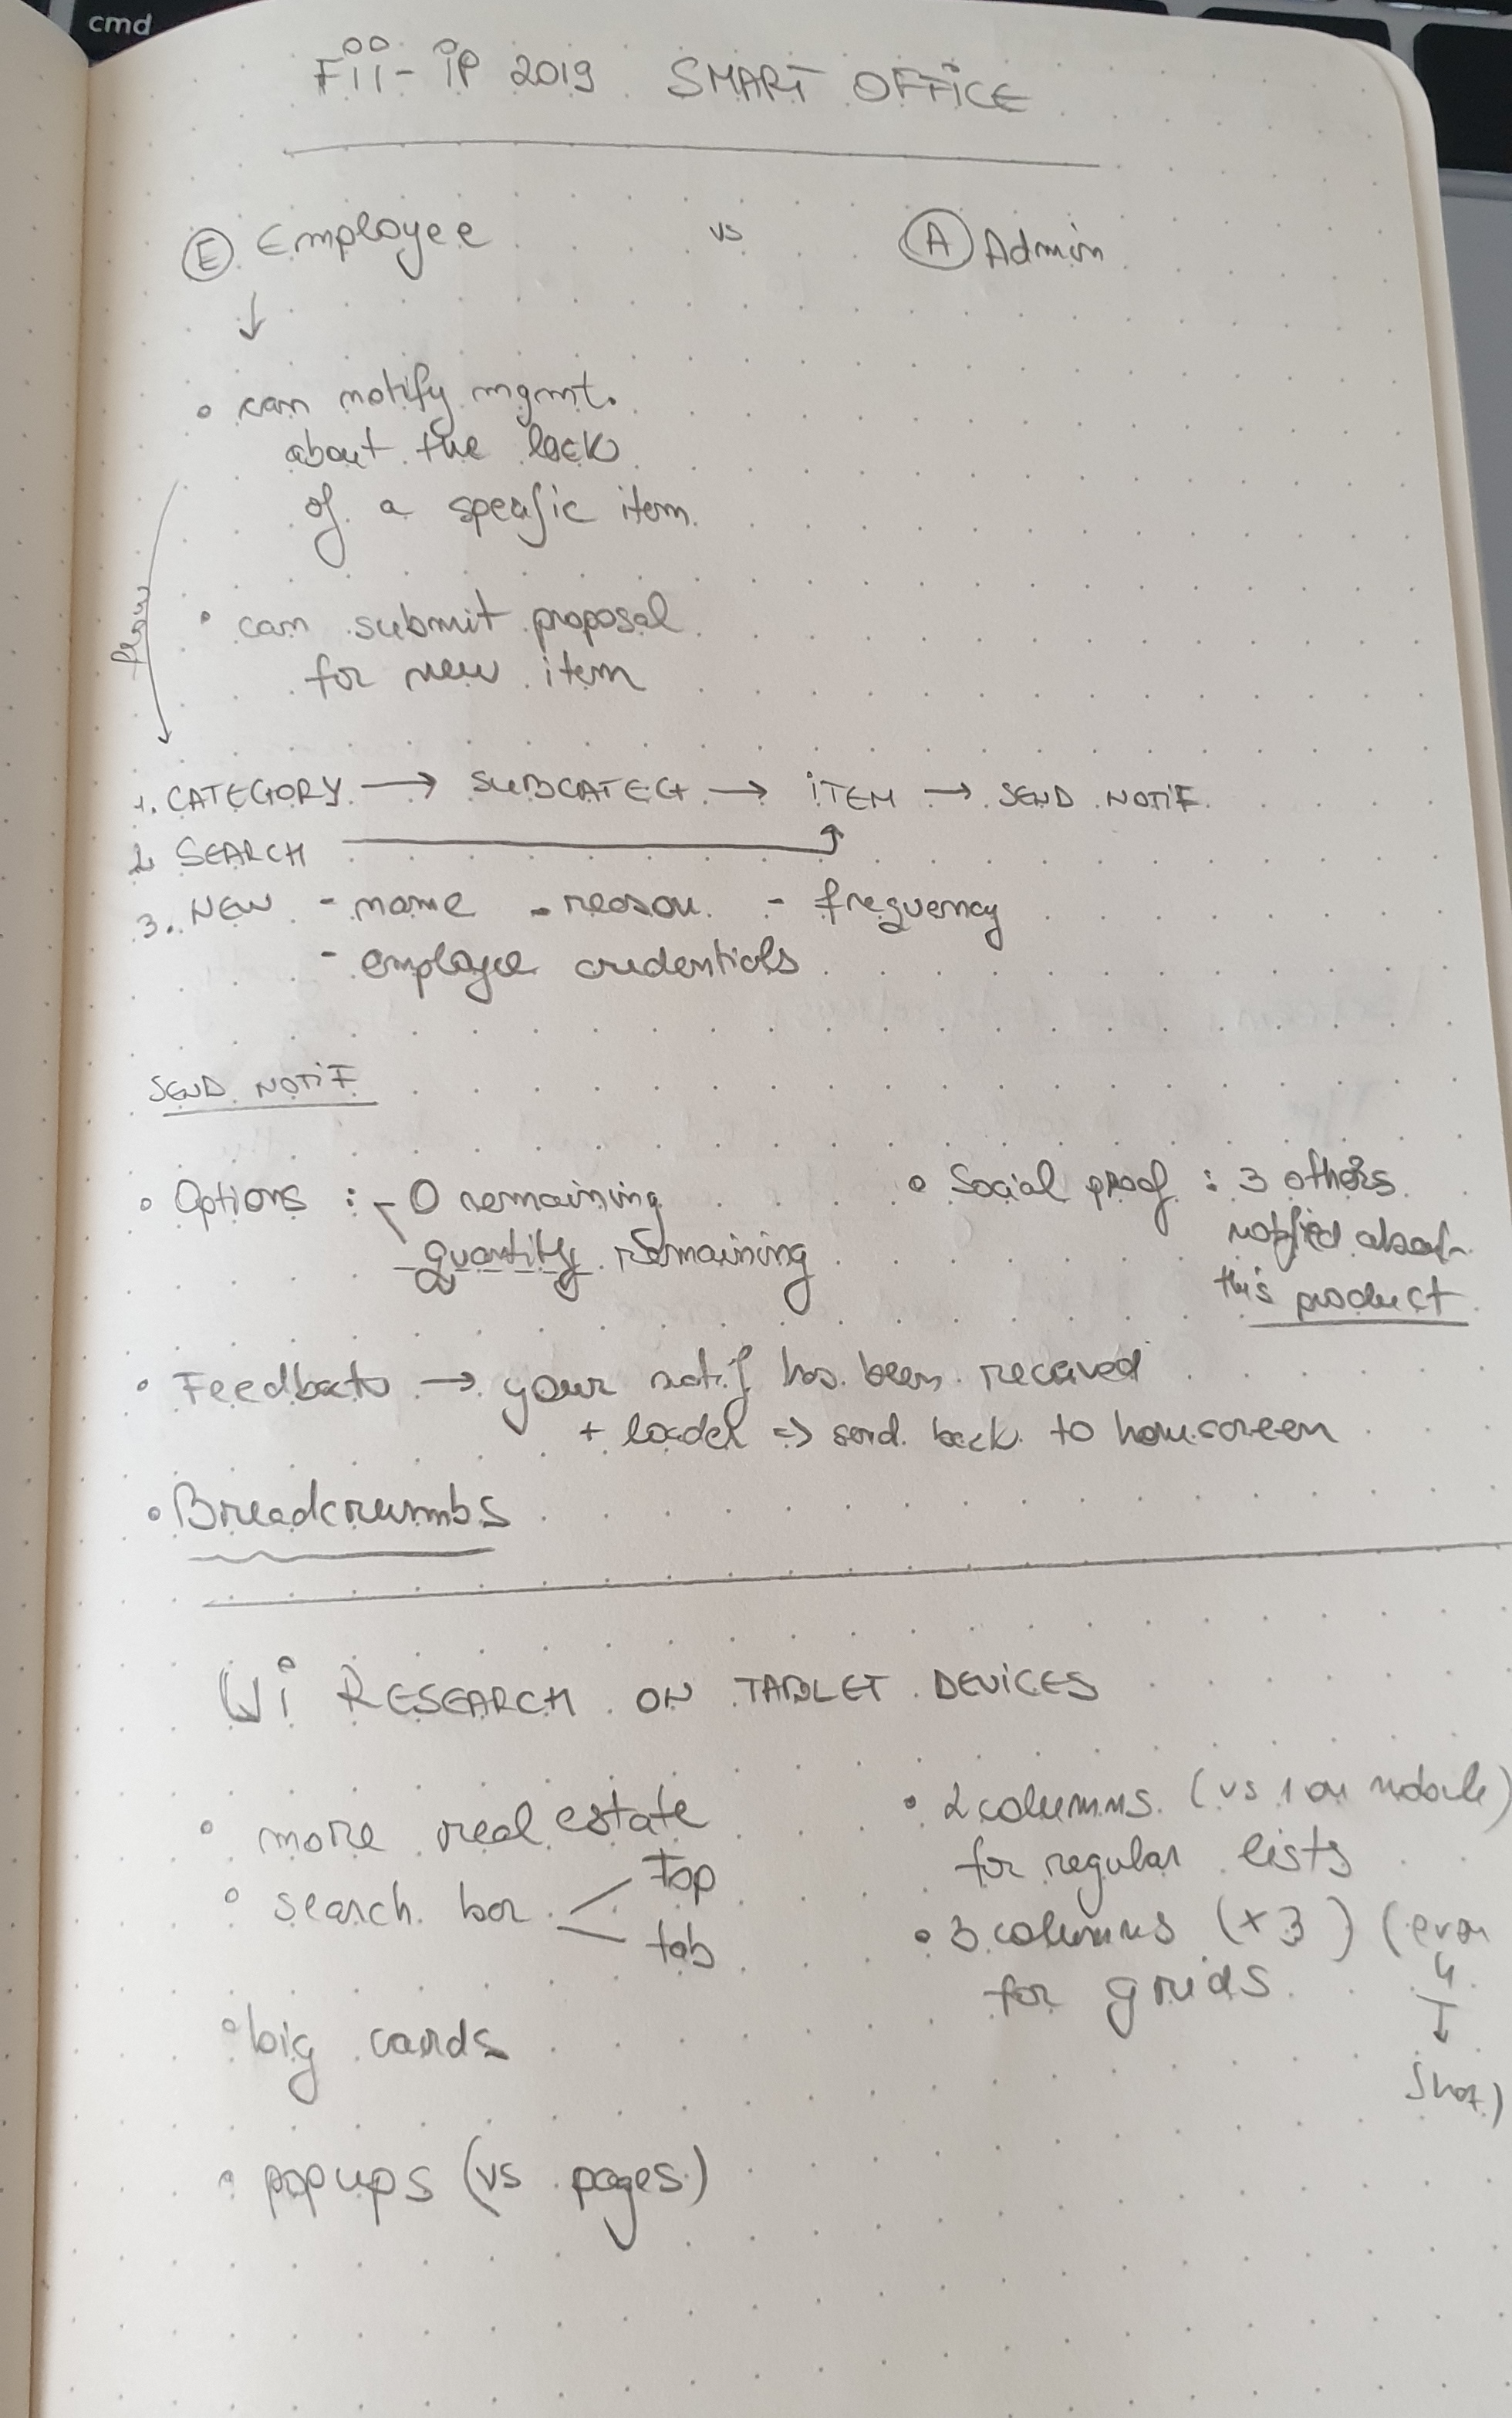 cmd
Fii-iP 2019 SMART OFFiCE
E Employee vs A Admin
• can notify mgmt.
about the lack
of a specific item.
• can submit proposal
for new item
flow
1. CATEGORY → SUBCATEG → iTEM → SEND NOTiF.
2. SEARCH
3. NEW - name - reason - frequency
- employee credentials
SEND NOTiF
• Options : - 0 remaining
- quantity remaining
• Social proof : 3 others
notified about
this product
• Feedback → your notif has been received
+ loader => send back to homescreen
• Breadcrumbs
Ui RESEARCH ON TABLET DEViCES
• more real estate
• search bar < top
tab
• big cards
• popups (vs pages)
• 2 columns (vs 1 on mobile)
for regular lists
• 3 columns (×3) (even
4
for grids